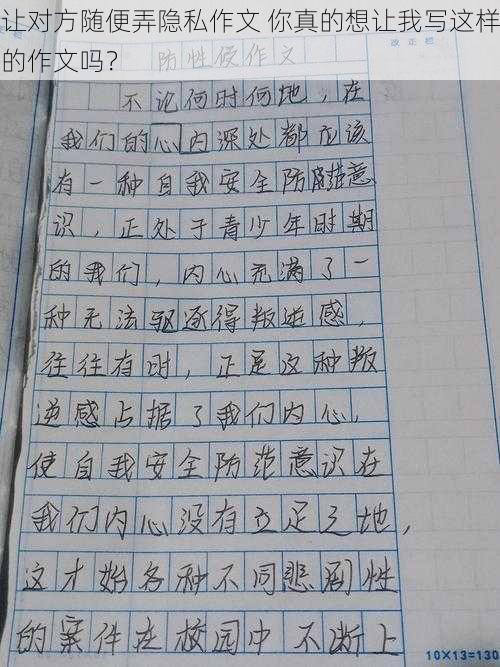 让对方随便弄隐私作文 你真的想让我写这样
的作文吗？
防性侵作文
改正栏
不论何时何地，在
我们的心内深处都应该
有一种自我安全防范意
识，正处于青少年时期
的我们，内心充满了一
种无法驱逐得叛逆感，
往往有时，正是这种叛
逆感占据了我们内心，
使自我安全防范意识在
我们内心没有立足之地，
这才始各种不同悲剧性
的案件在校园中不断上
10×13=130